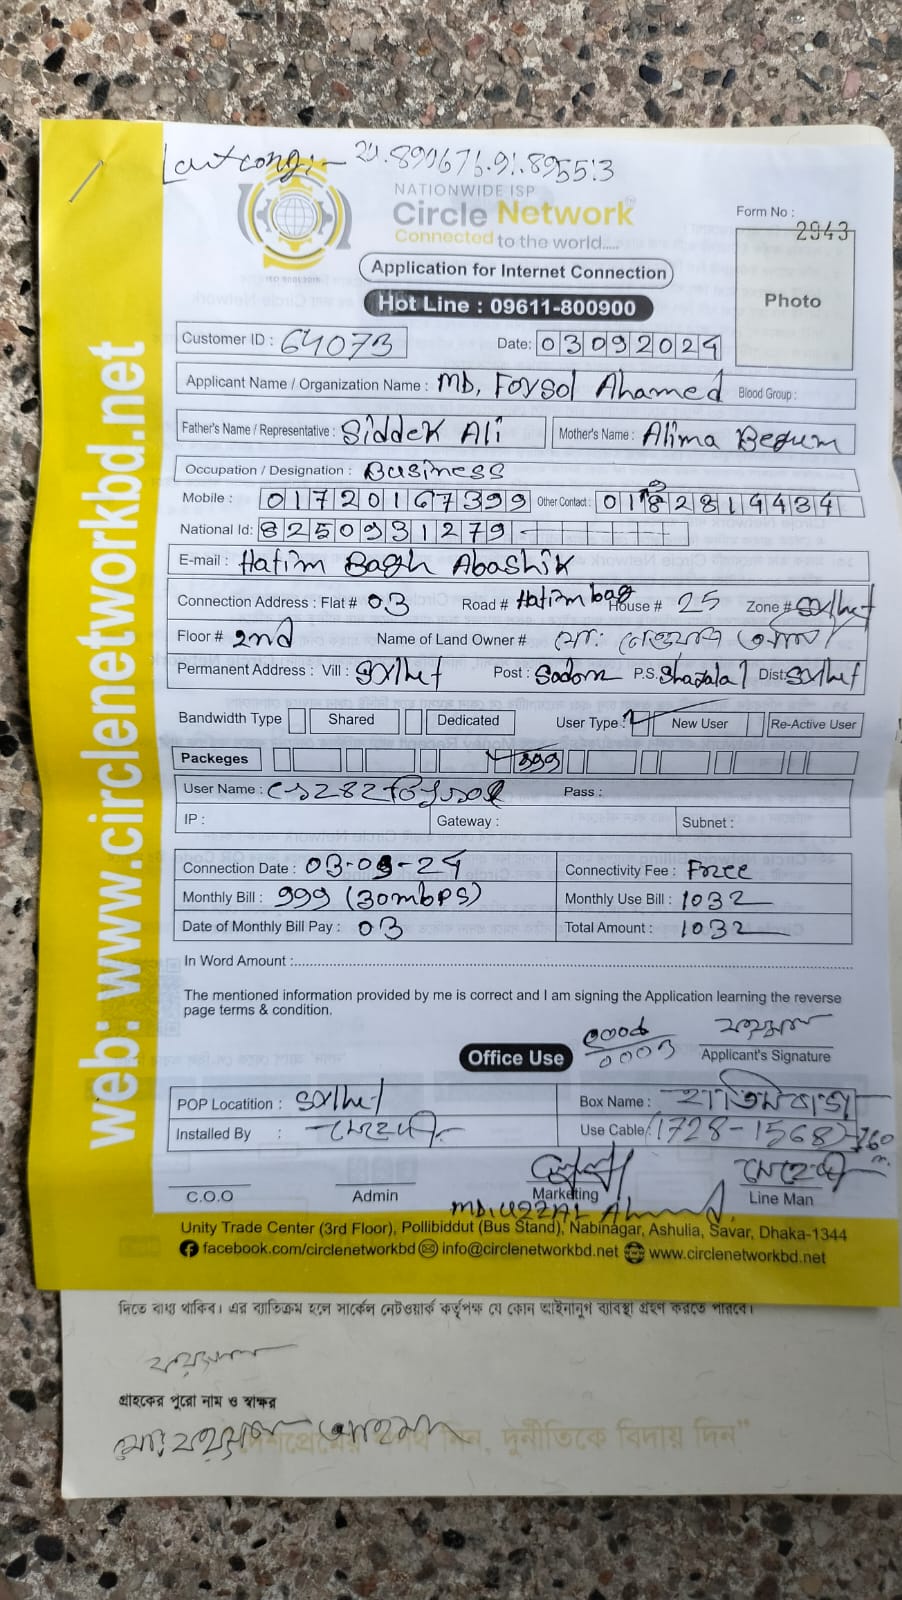 24.890676.91.895513
NATIONWIDE ISP
Circle Network
Connected to the world.....
ISO 9001:2015
Form No : 2943
Photo
Application for Internet Connection
Hot Line : 09611-800900
Customer ID : 64073 Date: 03092024
Applicant Name / Organization Name : MD, Foysol Ahamed Blood Group :
Father's Name / Representative : Siddek Ali Mother's Name : Alima Begum
Occupation / Designation : Business
Mobile : 01720167399 Other Contact : 01
National Id: 8250931279
E-mail : Hatim Bagh Abashik
Connection Address : Flat # 03 Road # Hatimbag House # 25 Zone # Sylhet
Floor # 2nd Name of Land Owner # মো:
Permanent Address : Vill : Sylhet Post : Sadar P.S. Dist: Sylhet
Bandwidth Type Shared Dedicated User Type : New User Re-Active User
Packeges 999
User Name : Pass :
IP : Gateway : Subnet :
Connection Date : 03-09-24 Connectivity Fee : Free
Monthly Bill : 999 (30mbps) Monthly Use Bill : 1032
Date of Monthly Bill Pay : 03 Total Amount : 1032
In Word Amount :
The mentioned information provided by me is correct and I am signing the Application learning the reverse
page terms & condition.
Office Use
ফয়সাল
Applicant's Signature
POP Locatition : Sylhet Box Name : হাতিমবাগ
Installed By : মেহেদী Use Cable (1728-1568)-160 m.
C.O.O Admin Marketing Line Man
MD. UZZAL Ahmed
মেহেদী
Unity Trade Center (3rd Floor), Pollibiddut (Bus Stand), Nabinagar, Ashulia, Savar, Dhaka-1344
facebook.com/circlenetworkbd info@circlenetworkbd.net www.circlenetworkbd.net
web: www.circlenetworkbd.net
দিতে বাধ্য থাকিব। এর ব্যতিক্রম হলে সার্কেল নেটওয়ার্ক কর্তৃপক্ষ যে কোন আইনানুগ ব্যাবস্থা গ্রহণ করতে পারবে।
ফয়সাল
গ্রাহকের পুরো নাম ও স্বাক্ষর
মোঃ ফয়সাল আহমদ
দেশপ্রেমের শপথ নিন, দুর্নীতিকে বিদায় দিন"